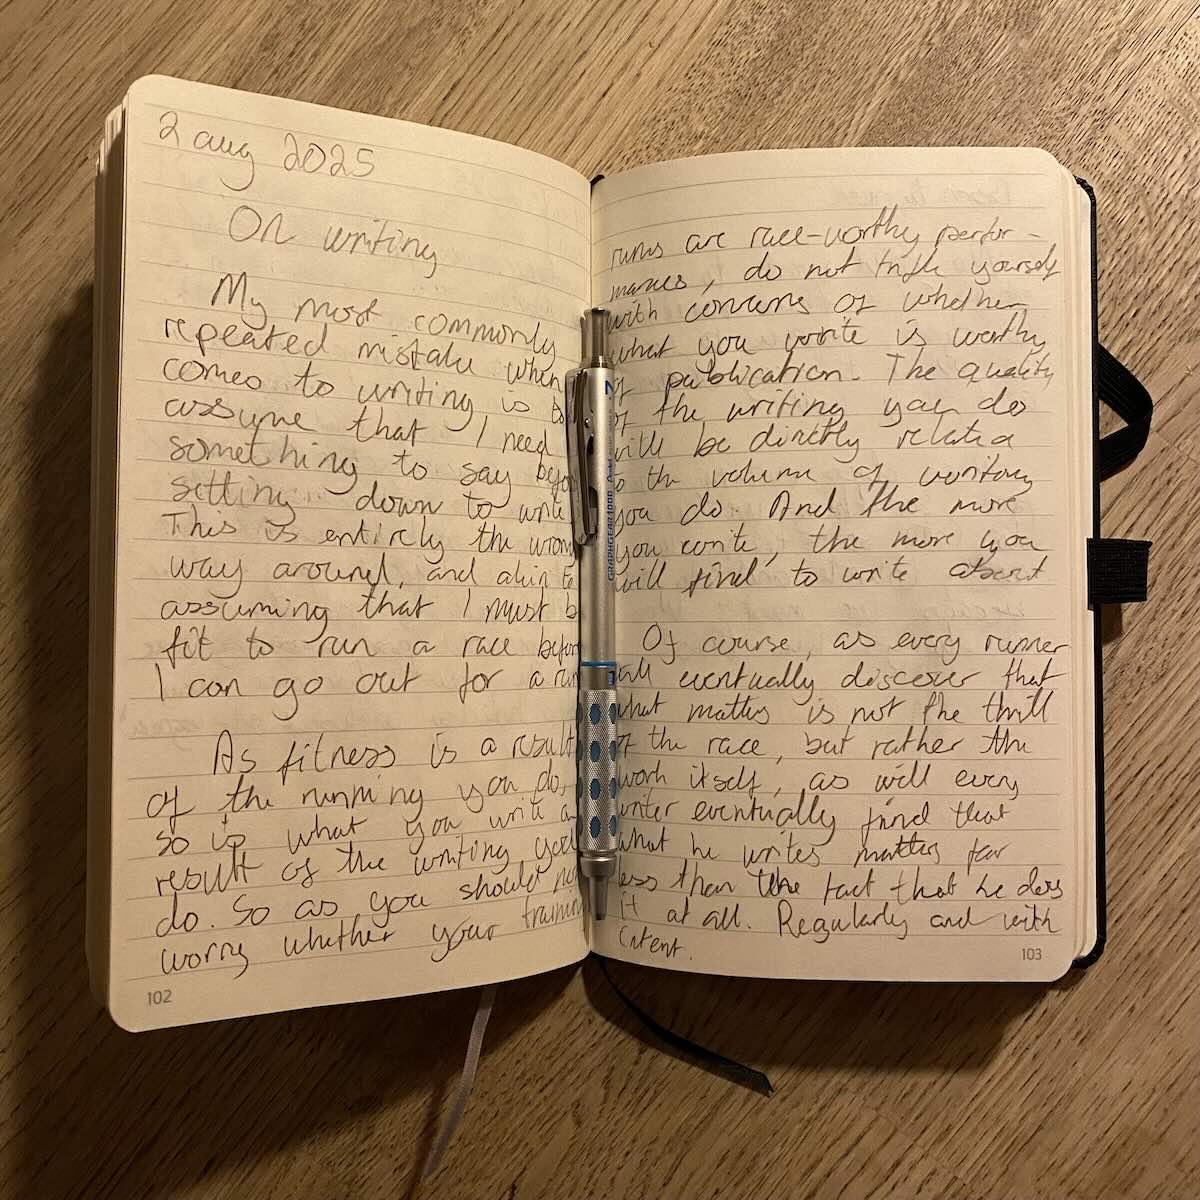 2 aug 2025
On writing
My most commonly
repeated mistake when
comes to writing, is to
assume that I need
something to say before
setting down to write
This is entirely the wrong
way around, and akin to
assuming that I must b
fit to run a race before
I can go out for a run
As fitness is a result
of the running you do,
so is what you write a
result of the writing you
do. So as you should not
worry whether your training
102
runs are race-worthy perfor-
mances, do not trifle yourself
with concerns of whether
what you write is worthy
of publication. The quality
of the writing you do
will be directly related
to the volume of writing
you do. And the more
you write, the more you
will find to write about
Of course, as every runner
will eventually discover that
what matters is not the thrill
of the race, but rather the
work itself, as will every
writer eventually find that
what he writes matters far
less than the fact that he does
it at all. Regularly and with
intent.
103
GRAPHGEAR 1000